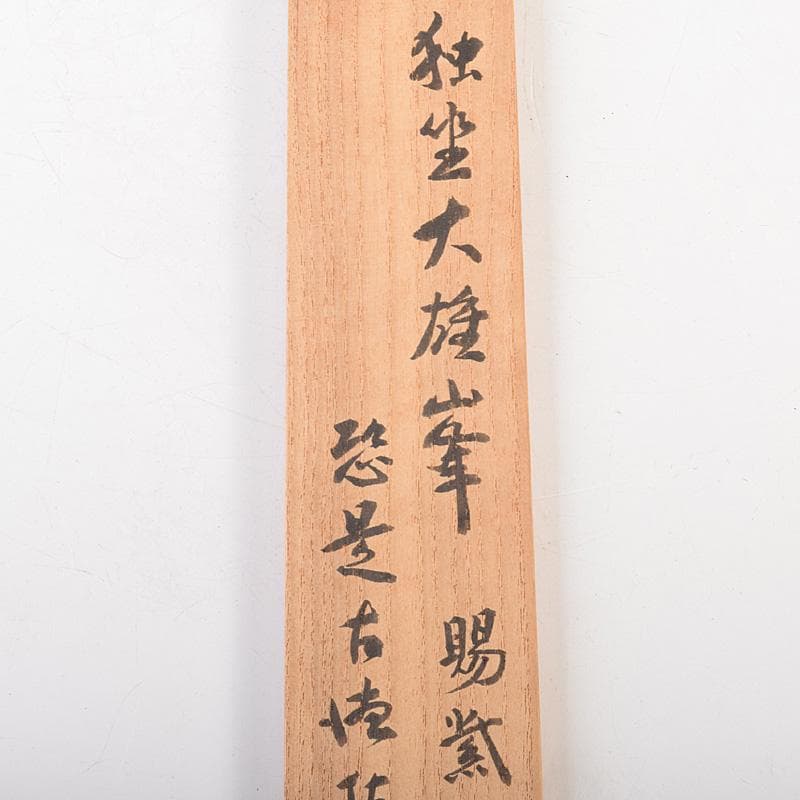 独坐大雄峯 賜紫
恐是古徳